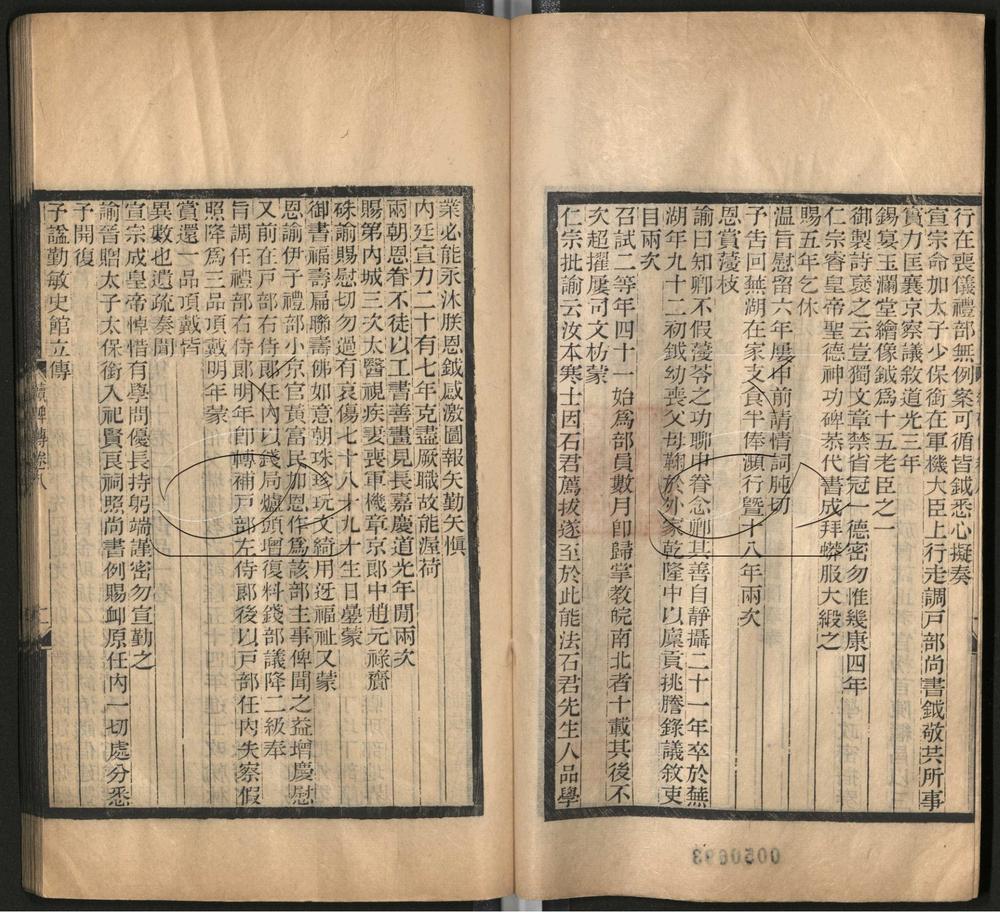 行在喪儀禮部無例案可循皆鉞悉心擬奏
宣宗命加太子少保銜在軍機大臣上行走調戸部尚書鉞敬共所事
實力匡襄京察議敘道光三年
錫宴玉瀾堂繪像鉞爲十五老臣之一
御製詩褒之云豈獨文章禁省冠一德密勿惟幾康四年
仁宗睿皇帝聖德神功碑恭代書成拜蟒服大緞之
賜五年乞休
溫旨慰留六年屢申前請情詞肫切
予吿回蕪湖在家支食半俸瀕行暨十八年兩次
恩賞薓枝
諭曰知卿不假薓苓之功聊申眷念卿其善自靜攝二十一年卒於蕪
湖年九十二初鉞幼喪父母鞠於外家乾隆中以廩貢挑謄錄議敘吏
目兩次
召試二等年四十一始爲部員數月卽歸掌教皖南北者十載其後不
次超擢屢司文枋蒙
仁宗批諭云汝本寒士因石君薦拔遂至於此能法石君先生人品學
業必能永沐朕恩鉞感激圖報矢勤矢愼
內廷宣力二十有七年克盡厥職故能渥荷
兩朝恩眷不徒以工書善畫見長嘉慶道光年閒兩次
賜第內城三次太醫視疾妻喪軍機章京郎中趙元祿齎
硃諭賜慰切勿過有哀傷七十八十九十生日曡蒙
御書福壽扁聯壽佛如意朝珠珍玩文綺用迓福祉又蒙
恩諭伊子禮部小京官黃富民加恩作爲該部主事俾聞之益增慶慰
又前在戸部右侍郎任內以錢局爐頭增復料錢部議降二級奉
旨調任禮部右侍郎明年卽轉補戸部左侍郎後以戸部任內失察假
照降爲三品頂戴明年蒙
賞還一品頂戴皆
異數也遺疏奏聞
宣宗成皇帝悼惜有學問優長持躬端謹密勿宣勤之
諭晉贈太子太保銜入祀賢良祠照尚書例賜卹原任內一切處分悉
予開復
予謚勤敏史館立傳
續碑傳卷八
0050693